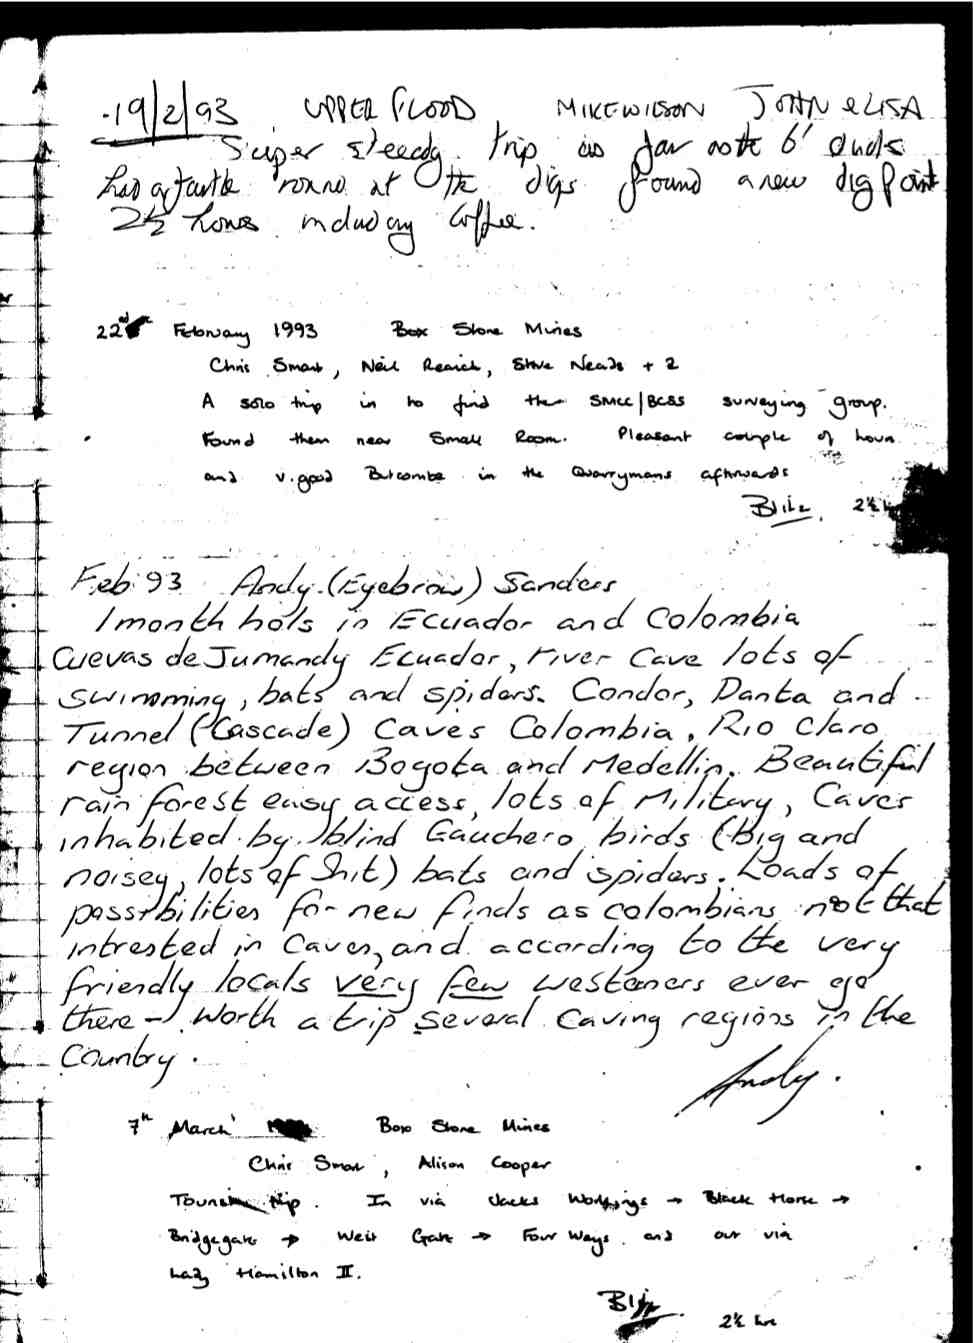 19/2/93 UPPER FLOOD MIKE WILSON JOHN & LISA
Super steady trip as far as the 6' ducks
had a round at the digs found a new dig point
2½ hours including coffee.
22nd February 1993 Box Stone Mines
Chris Smart, Neil Rearich, Steve Neads + 2
A solo trip in to find the SMCC/BCSS surveying group.
Found them near Small Room. Pleasant couple of hours
and v.good Butcombe in the Quarrymans afterwards
Blitz. 2½ hrs
Feb 93 Andy (Eyebrow) Sanders
1 month hols in Ecuador and Colombia
Cuevas de Jumandy Ecuador, river cave lots of
swimming, bats and spiders. Condor, Danta and
Tunnel (Cascade) Caves Colombia, Rio Claro
region between Bogota and Medellin. Beautiful
rain forest easy access, lots of Military, Caves
inhabited by blind Gauchero birds (Big and
noisey, lots of Shit) bats and spiders. Loads of
possibilities for new finds as colombians not that
intrested in Caves, and according to the very
friendly locals very few westeners ever go
there - Worth a trip several Caving regions in the
Country.
Andy.
7th March Box Stone Mines
Chris Smart, Alison Cooper
Tourist trip. In via Jacks Workings → Black Horse →
Bridgegate → Weir Gate → Four Ways and out via
Lazy Hamilton II.
Blitz 2½ hrs